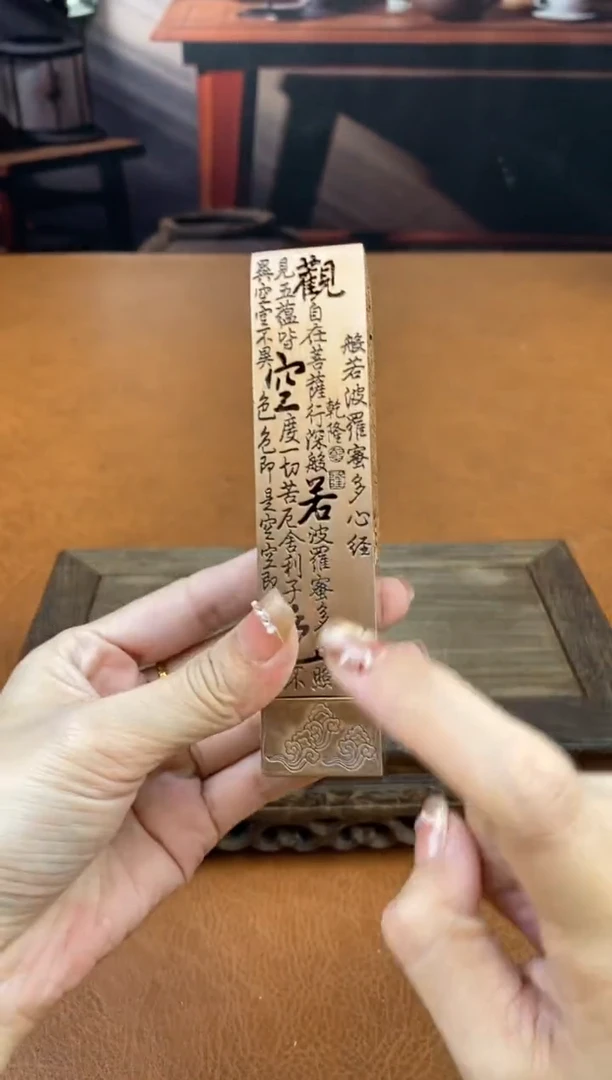 般若波羅蜜多心経
乾隆
觀自在菩薩行深般若波羅蜜多
照
見五蘊皆空度一切苦厄舍利子
不
異空空不異色色即是空空即